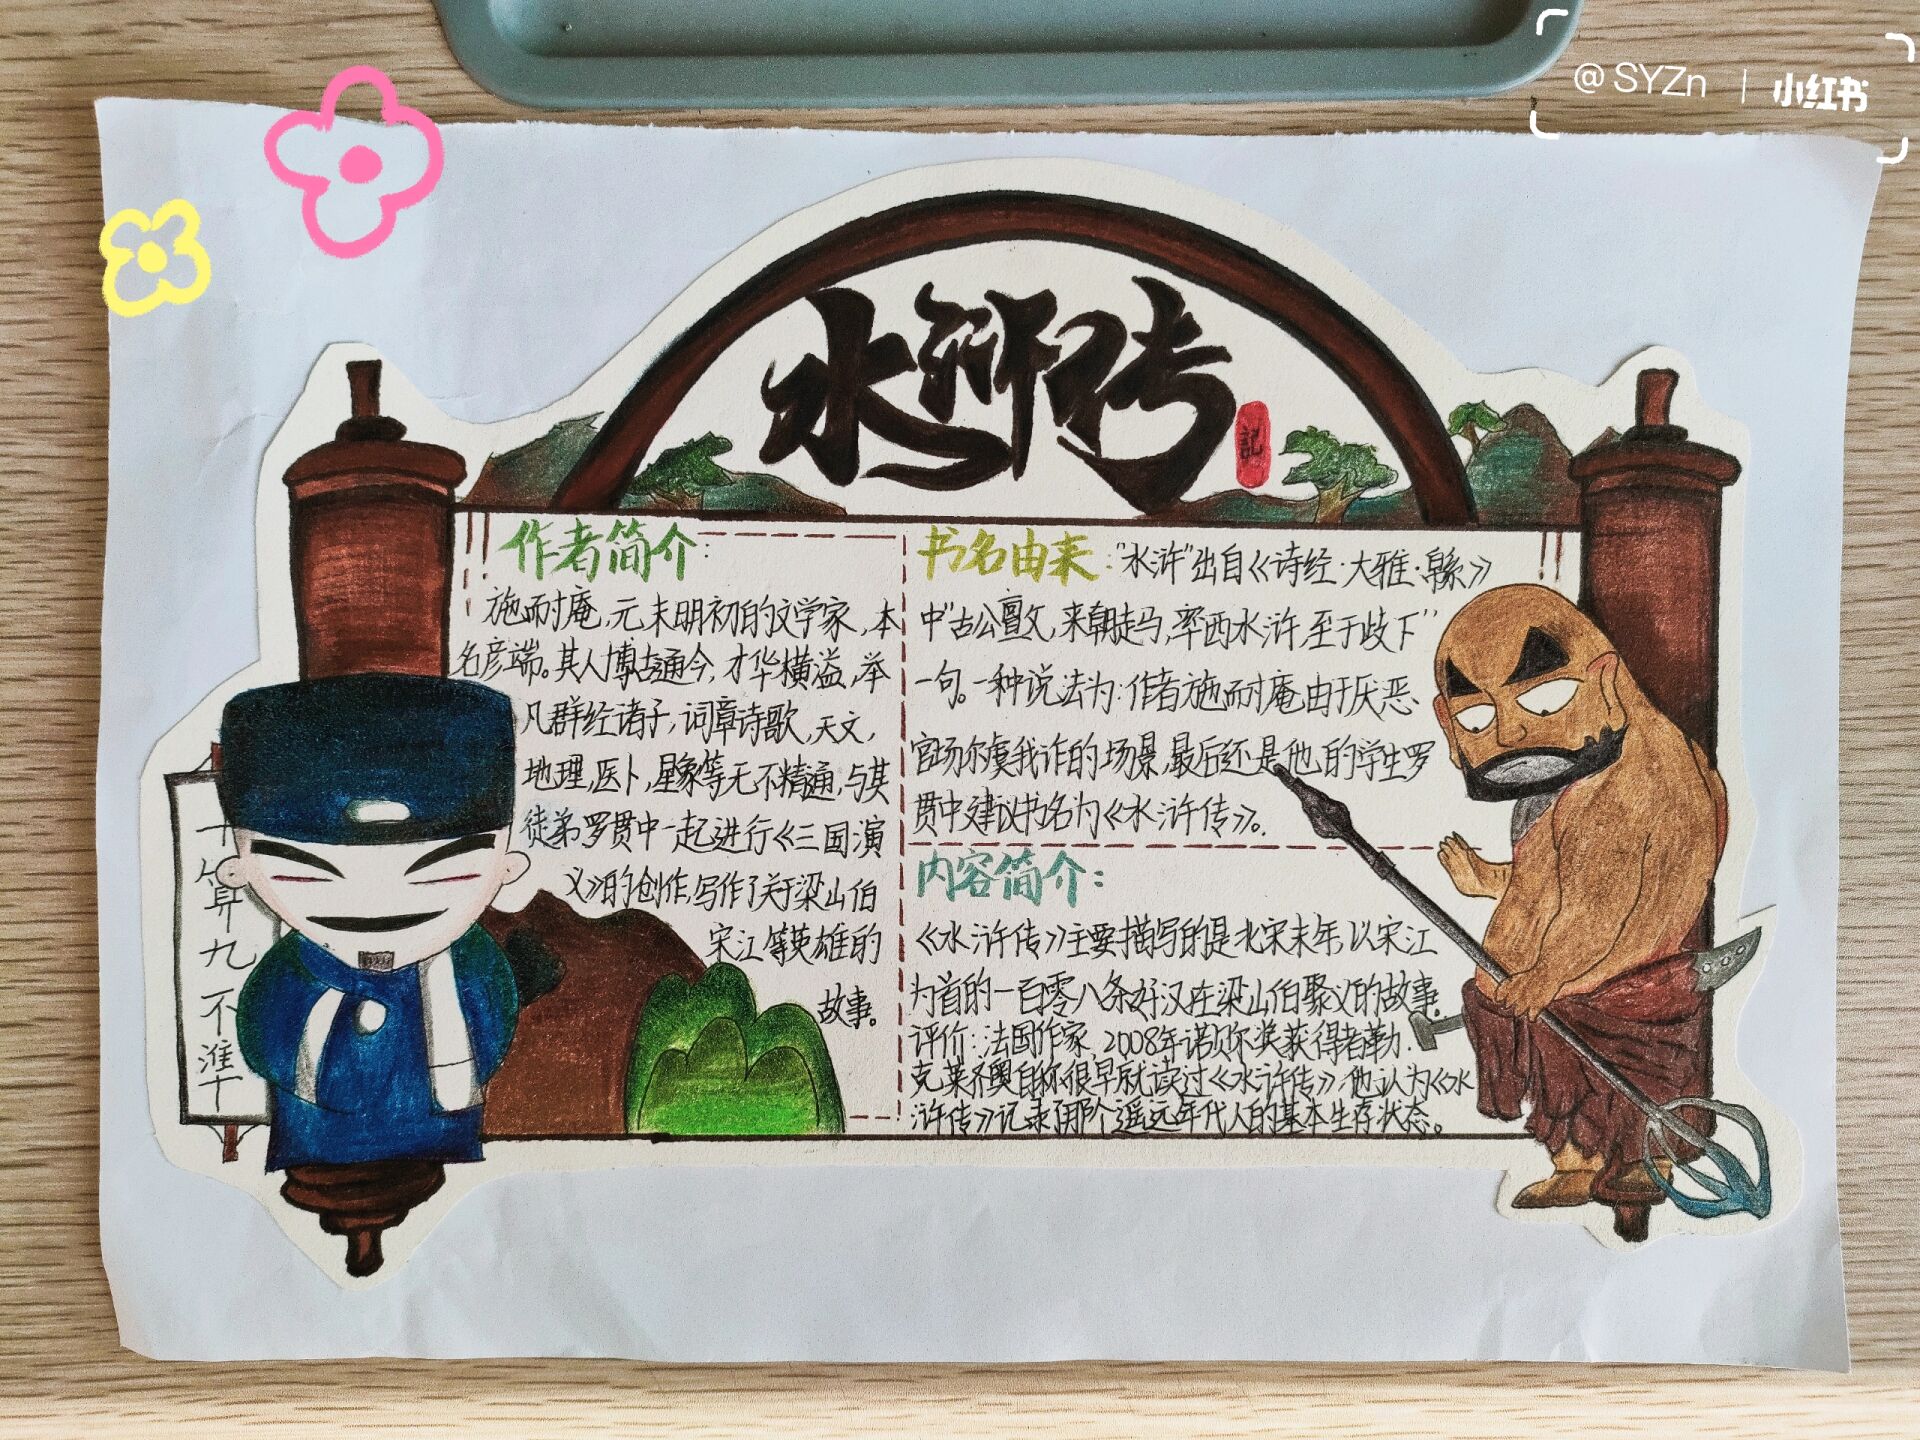 @SYZn | 小红书
水浒传
記
作者简介:
施耐庵,元末明初的文学家,本
名彦端。其人博古通今,才华横溢,举
凡群经诸子,词章诗歌,天文,
地理,医卜,星象等无不精通,与其
徒弟罗贯中一起进行《三国演
义》的创作,写作了关于梁山伯
宋江等英雄的
故事。
十算九不准
书名由来:"水浒"出自《诗经·大雅·緜》
中"古公亶父,来朝走马,率西水浒,至于歧下"
一句。一种说法为:作者施耐庵由于厌恶
官场尔虞我诈的场景,最后还是他的学生罗
贯中建议书名为《水浒传》。
内容简介:
《水浒传》主要描写的是北宋末年,以宋江
为首的一百零八条好汉在梁山伯聚义的故事。
评价:法国作家,2008年诺贝尔奖获得者勒·
克莱齐奥自称很早就读过《水浒传》,他认为《水
浒传》记录了那个遥远年代人的基本生存状态。